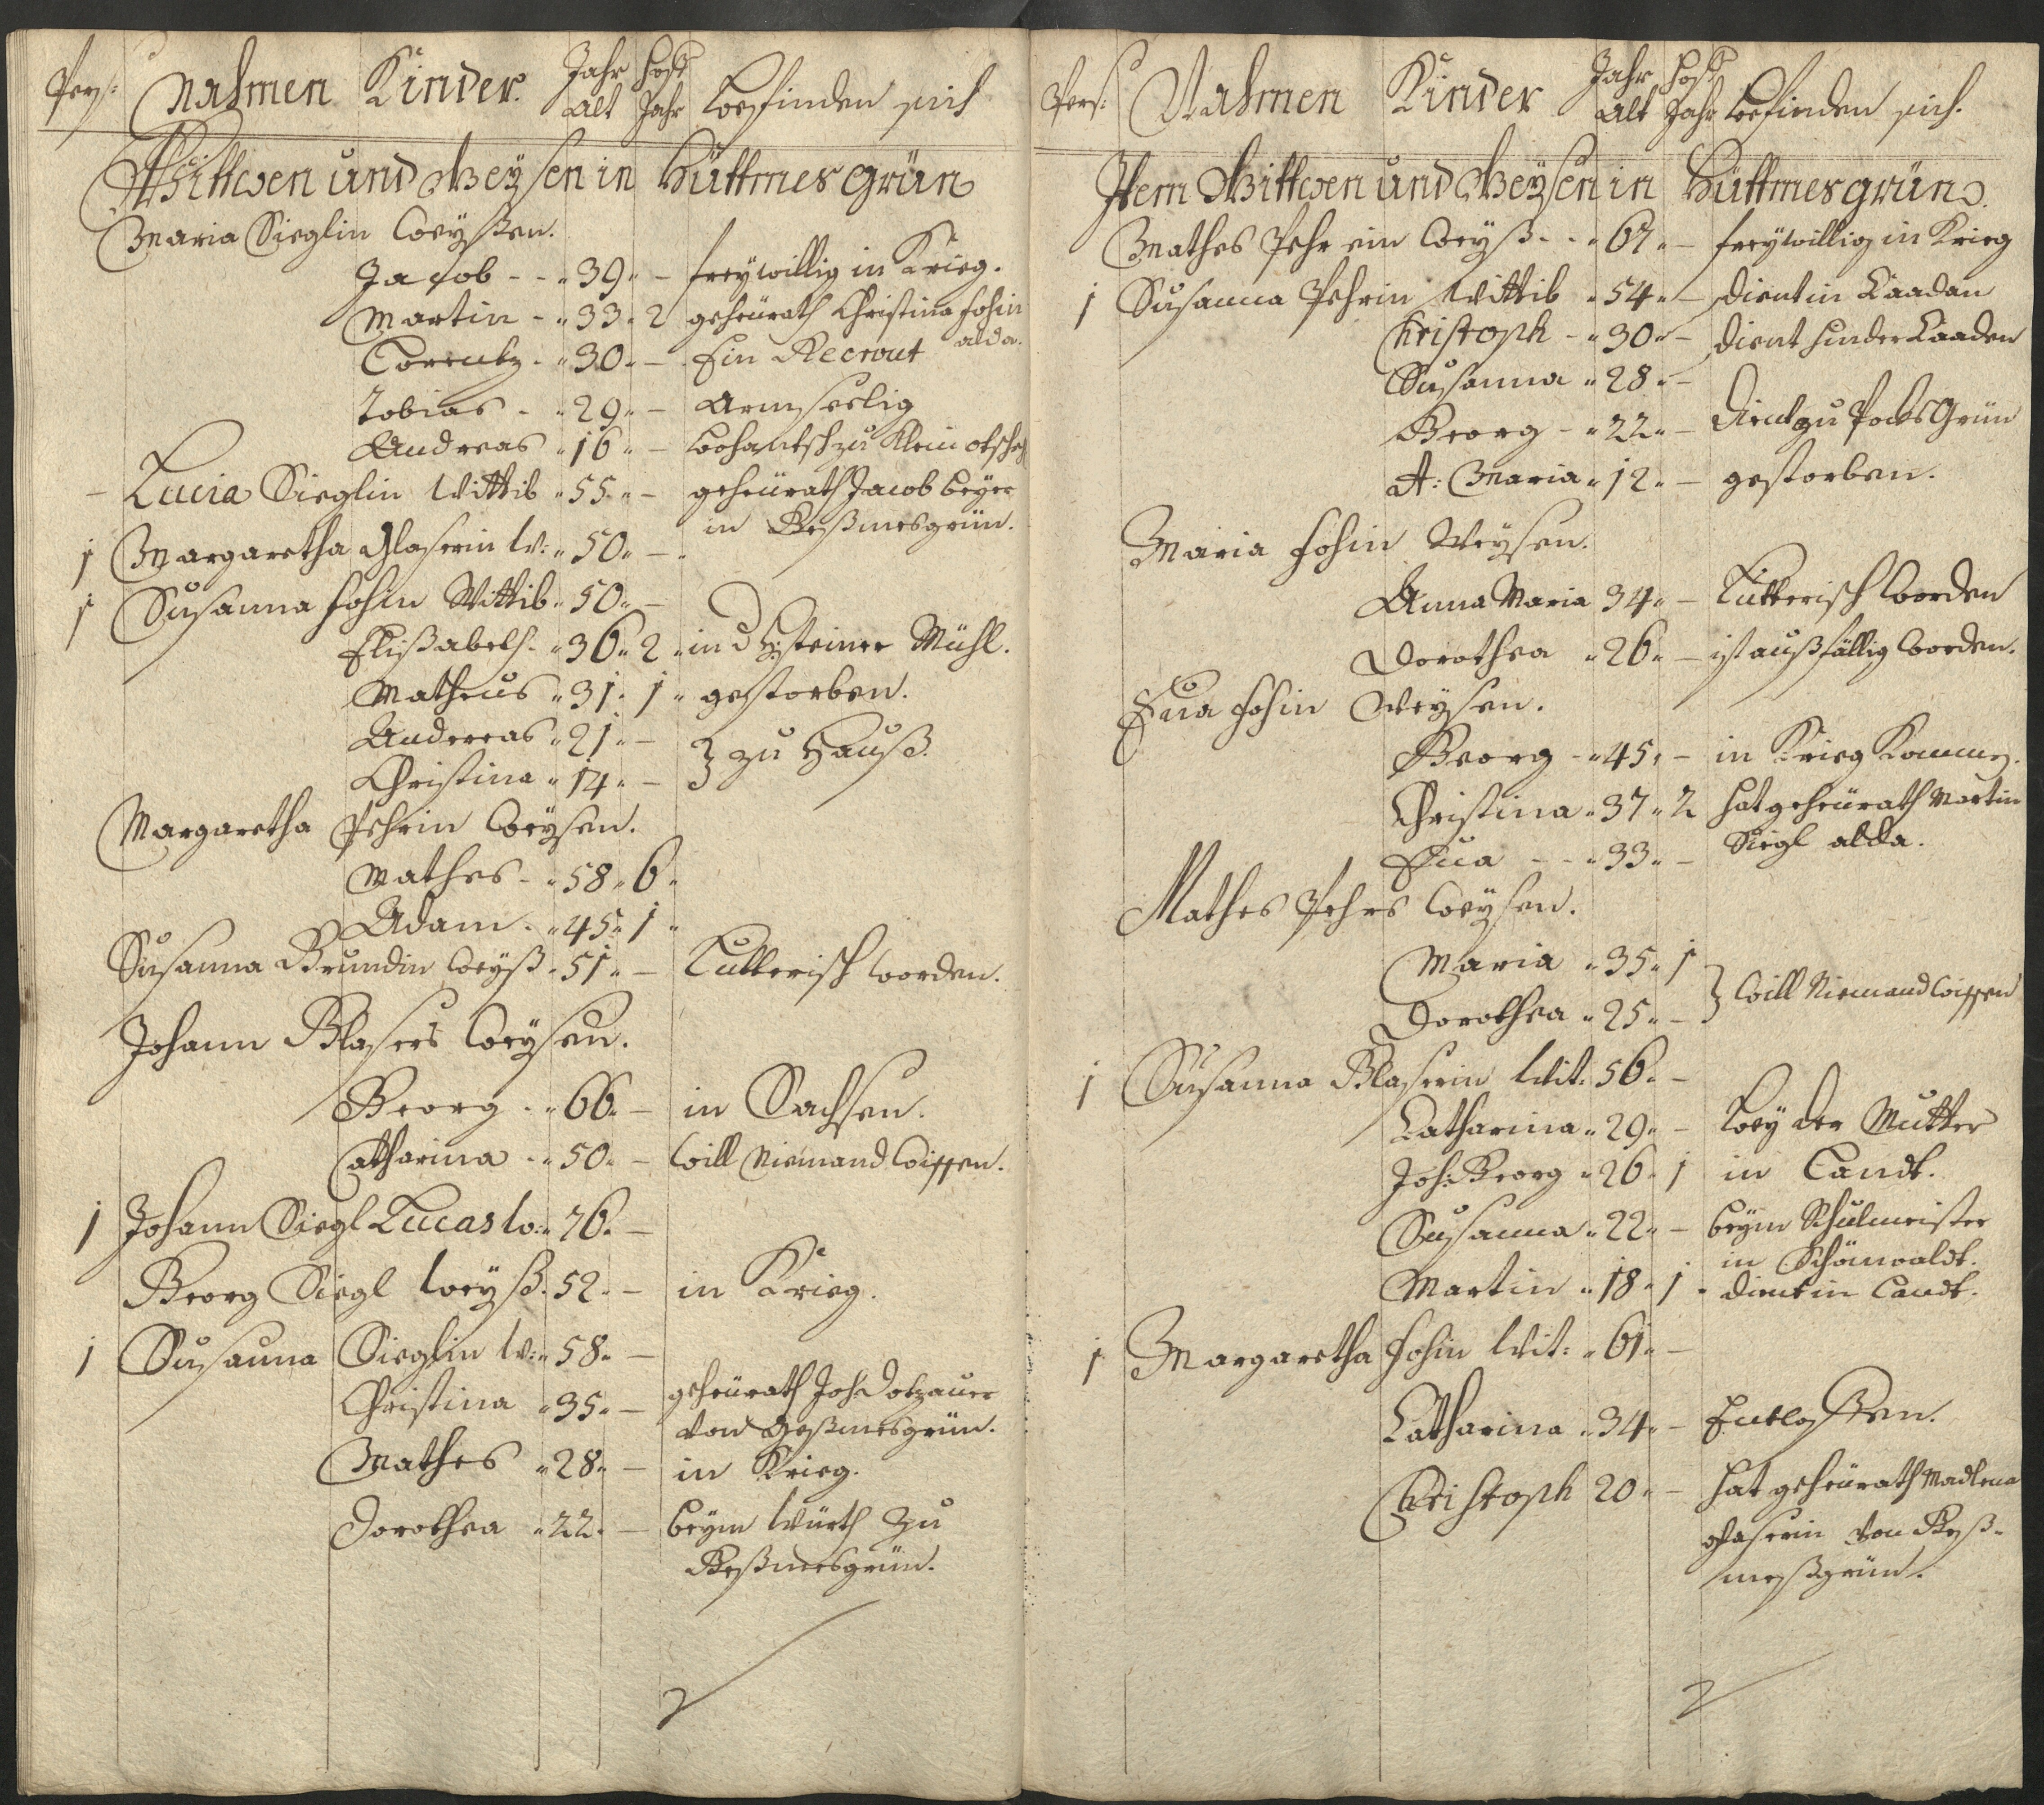 Pers: Nahmen Kinder. Jahr alt Hoff Jahr befinden sich
Wittwen und Weysen in Hüttmesgrün
Maria Sieglin Weyßen.
Jacob - - „ 39 „ – freywillig in Krieg.
Martin - „ 33 „ 2 geheürath Christina Fohin
alda.
Lorentz - „ 30 „ – Ein Recrout
Tobias - „ 29 „ – Armseelig
Andreas „ 16 „ – zu Klein
– Lucia Sieglin Wittib „ 55 „ – geheürath Jacob Beyer
in Geßmesgrün.
1 Margaretha Glaserin W: „ 50 „ –
1 Susanna Fohin Wittib „ 50 „ –
Elißabeth „ 36 „ 2 „ in d Hsteiner Mühl.
Matheus „ 31 „ 1 „ gestorben.
Andereas „ 21 „ –
} zu Hauß.
Christina „ 14 „ –
Margaretha Pehrin Weysen.
Mathes - „ 58 „ 6 „
Adam - „ 45 „ 1 „
Susanna Brundin Weyß „ 51 „ – Lutterisch worden.
Johann Glasers Weysen.
Georg - „ 66 „ – in Sachsen.
Catharina - „ 50 „ – Will Niemand Wissen.
1 Johann Siegl Lucas W: „ 76 „ –
Georg Siegl Weyß „ 52 „ – in Krieg.
1 Susanna Sieglin W: „ 58 „ –
Christina „ 35 „ – geheürath Joh: Dotzauer
von Geßmesgrün.
Mathes „ 28 „ – in Krieg.
Dorothea „ 22 „ – beym Würth zu
Geßmesgrün.
Pers: Nahmen Kinder Jahr Alt Hoff Jahr befinden sich.
Item Wittwen und Weysen in Hüttmesgrün.
Mathes Pehr ein Weyß - - „ 67 „ – freywillig in Krieg
1 Susanna Pehrin Wittib „ 54 „ – dient in Caadan
Christoph - „ 30 „ – dient hinder Caaden
Susanna „ 28 „ –
Georg - „ 22 „ – dient zu PocksGrün
A: Maria „ 12 „ – gestorben.
Maria Fohin Weysen.
Anna Maria 34 „ – Lutterisch Worden
Dorothea „ 26 „ – ist außfällig Worden.
Eua Fohin Weysen.
Georg - „ 45 „ – in Krieg Kommen.
Christina „ 37 „ 2 hat geheürath Martin
Siegl allda.
Eua - - „ 33 „ –
Mathes Pehrs Weysen.
Maria „ 35 „ 1
} Will Niemand Wissen
Dorothea „ 25 „ –
1 Susanna Glaserin Wit: 56 „ –
Catharina „ 29 „ – Bey der Mutter
Joh: Georg „ 26 „ 1 in Landt.
Susanna „ 22 „ – beym Schulmeister
in Schönwaldt.
Martin „ 18 „ 1 „ dient in Landt.
1 Margaretha Fohin Wit: „ 61 „ –
Catharina „ 34 „ – Entlossen.
Christoph 20 „ – hat geheürath Madlena
Glaserin von Geß-
meßgrün.